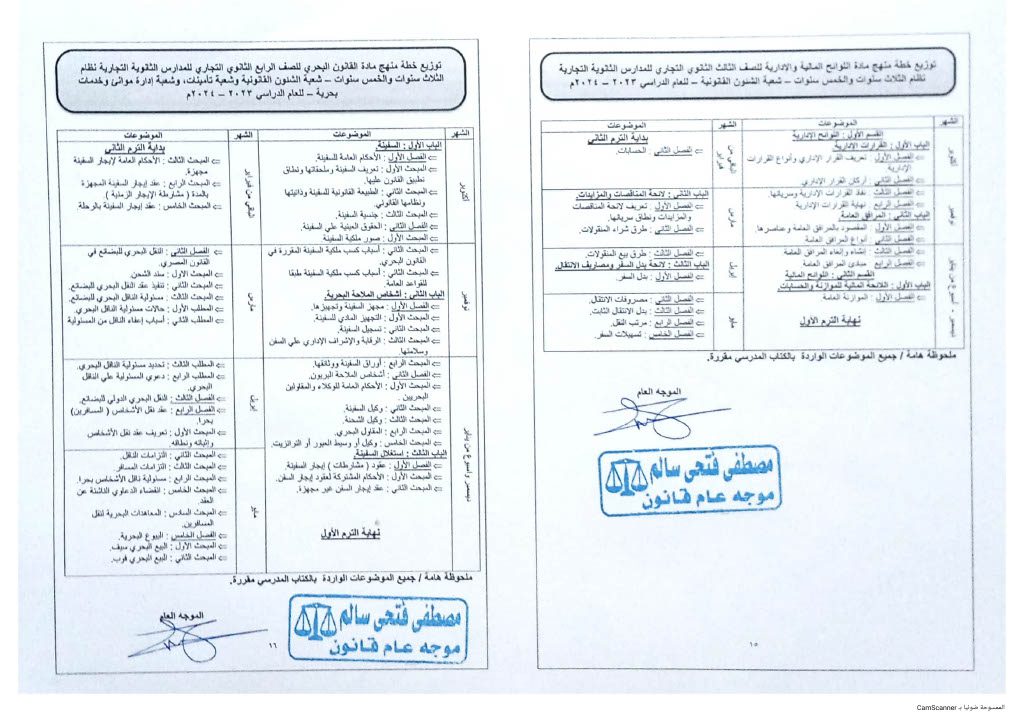 توزيع خطة منهج مادة اللوائح المالية والإدارية للصف الثالث الثانوي التجاري للمدارس الثانوية التجارية
نظام الثلاث سنوات والخمس سنوات – شعبة الشئون القانونية – للعام الدراسي ٢٠٢٣ – ٢٠٢٤م
الشهر
الموضوعات
الشهر
الموضوعات
أكتوبر
القسم الأول : اللوائح الإدارية
الباب الأول : القرارات الإدارية
الفصل الأول : تعريف القرار الإداري وأنواع القرارات
الإدارية
الفصل الثاني : أركان القرار الإداري
نوفمبر
الفصل الثالث : نفاذ القرارات الإدارية وسريانها.
الفصل الرابع : نهاية القرارات الإدارية
الباب الثاني : المرافق العامة
الفصل الأول : المقصود بالمرافق العامة وعناصرها.
الفصل الثاني : أنواع المرافق العامة
ديسمبر + أسبوع من يناير
الفصل الثالث : إنشاء وإلغاء المرافق العامة
الفصل الرابع : مبادئ المرافق العامة
القسم الثاني : اللوائح المالية
الباب الأول : اللائحة المالية للموازنة والحسابات.
الفصل الأول : الموازنة العامة
نهاية الترم الأول
الباقي من فبراير
بداية الترم الثاني
الفصل الثاني : الحسابات.
مارس
الباب الثاني : لائحة المناقصات والمزايدات.
الفصل الأول : تعريف لائحة المناقصات
والمزايدات ونطاق سريانها.
الفصل الثاني : طرق شراء المنقولات.
ابريل
الفصل الثالث : طرق بيع المنقولات
الباب الثالث : لائحة بدل السفر ومصاريف الانتقال.
الفصل الأول : بدل السفر
مايو
الفصل الثاني : مصروفات الانتقال.
الفصل الثالث : بدل الانتقال الثابت.
الفصل الرابع : مرتب النقل.
الفصل الخامس : تسهيلات السفر.
ملحوظة هامة / جميع الموضوعات الواردة بالكتاب المدرسي مقررة.
الموجه العام
مصطفى فتحى سالم
موجه عام قانون
١٥
توزيع خطة منهج مادة القانون البحري للصف الرابع الثانوي التجاري للمدارس الثانوية التجارية نظام
الثلاث سنوات والخمس سنوات – شعبة الشئون القانونية وشعبة تأمينات، وشعبة إدارة موانئ وخدمات
بحرية – للعام الدراسي ٢٠٢٣ – ٢٠٢٤م
الشهر
الموضوعات
الشهر
الموضوعات
أكتوبر
الباب الأول : السفينة.
الفصل الأول : الأحكام العامة للسفينة.
المبحث الأول : تعريف السفينة وملحقاتها ونطاق
تطبيق القانون عليها.
المبحث الثاني : الطبيعة القانونية للسفينة وذاتيتها
ونظامها القانوني.
المبحث الثالث : جنسية السفينة.
الفصل الثاني : الحقوق العينية علي السفينة.
المبحث الأول : صور ملكية السفينة
نوفمبر
المبحث الثاني : أسباب كسب ملكية السفينة المقررة في
القانون البحري.
المبحث الثالث : أسباب كسب ملكية السفينة طبقا
للقواعد العامة.
الباب الثاني : أشخاص الملاحة البحرية.
الفصل الأول : مجهز السفينة وتجهيزها.
المبحث الأول : التجهيز المادي للسفينة.
المبحث الثاني : تسجيل السفينة.
المبحث الثالث : الرقابة والإشراف الإداري علي السفن
وسلامتها.
ديسمبر وأسبوع من يناير
المبحث الرابع : أوراق السفينة ووثائقها.
الفصل الثاني : أشخاص الملاحة البريون.
المبحث الأول : الأحكام العامة للوكلاء والمقاولين
البحريين .
المبحث الثاني : وكيل السفينة.
المبحث الثالث : وكيل الشحنة.
المبحث الرابع : المقاول البحري.
المبحث الخامس : وكيل أو وسيط العبور أو الترانزيت.
الباب الثالث : استغلال السفينة
الفصل الأول : عقود ( مشارطات ) إيجار السفينة.
المبحث الأول : الأحكام المشتركة لعقود إيجار السفن.
المبحث الثاني : عقد إيجار السفن غير مجهزة.
نهاية الترم الأول
الباقي من فبراير
بداية الترم الثاني
المبحث الثالث : الأحكام العامة لإيجار السفينة
مجهزة.
المبحث الرابع : عقد إيجار السفينة المجهزة
بالمدة ( مشارطة الإيجار الزمنية )
المبحث الخامس : عقد إيجار السفينة بالرحلة.
مارس
الفصل الثاني : النقل البحري للبضائع في
القانون المصري.
المبحث الأول : سند الشحن.
المبحث الثاني : تنفيذ عقد النقل البحري للبضائع.
المبحث الثالث : مسئولية الناقل البحري للبضائع.
المطلب الأول : حالات مسئولية الناقل البحري.
المطلب الثاني : أسباب إعفاء الناقل من المسئولية
ابريل
المطلب الثالث : تحديد مسئولية الناقل البحري.
المطلب الرابع : دعوي المسئولية علي الناقل
البحري.
الفصل الثالث : النقل البحري الدولي للبضائع.
الفصل الرابع : عقد نقل الأشخاص ( المسافرين)
بحرا.
المبحث الأول : تعريف عقد نقل الأشخاص
وإثباته ونطاقه.
مايو
المبحث الثاني : التزامات الناقل.
المبحث الثالث : التزامات المسافر.
المبحث الرابع : مسئولية ناقل الأشخاص بحرا.
المبحث الخامس : انقضاء الدعاوي الناشئة عن
العقد.
المبحث السادس : المعاهدات البحرية لنقل
المسافرين.
الفصل الخامس : البيوع البحرية.
المبحث الأول : البيع البحري سيف.
المبحث الثاني : البيع البحري فوب.
ملحوظة هامة / جميع الموضوعات الواردة بالكتاب المدرسي مقررة.
الموجه العام
مصطفى فتحى سالم
موجه عام قانون
١٦
الممسوحة ضوئيا بـ CamScanner